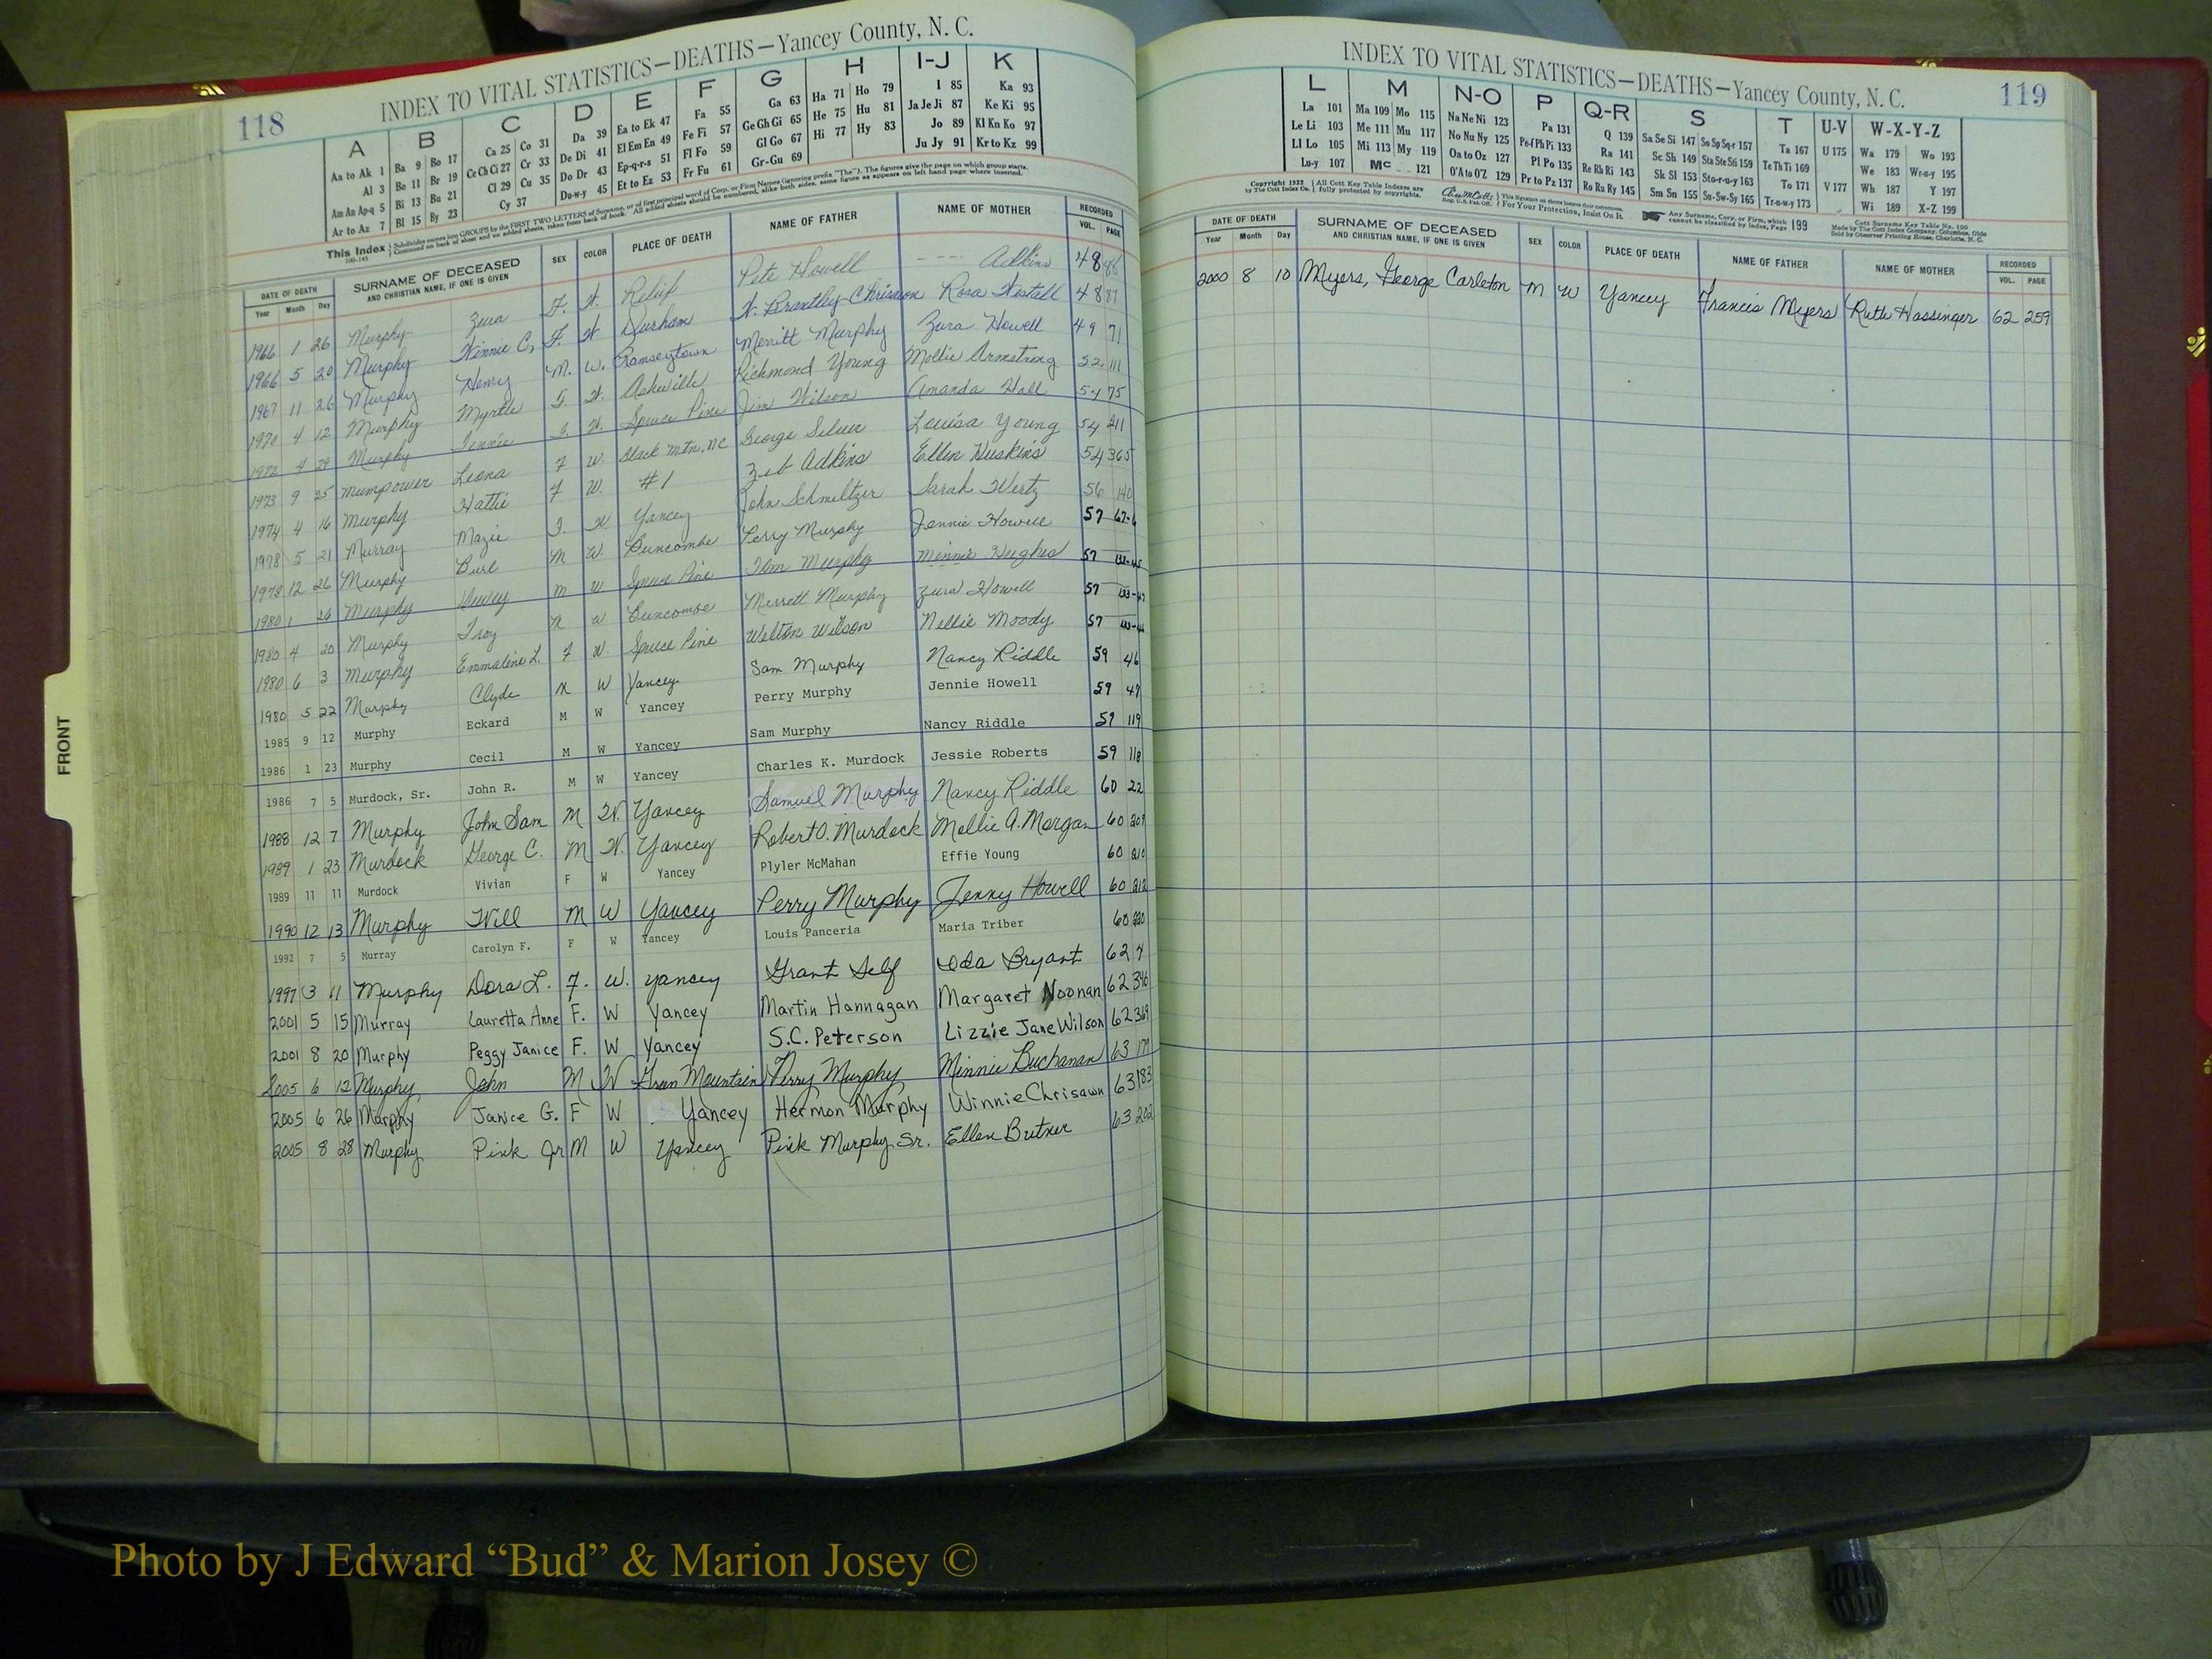 118
INDEX TO VITAL STATISTICS—DEATHS—Yancey County, N. C.
A B C D E F G H I-J K
Aa to Ak 1 Ba 9 Bo 17 Ca 25 Co 31 Da 39 Ea to Ek 47 Fa 55 Ga 63 Ha 71 Ho 79 I 85 Ka 93
Al 3 Be 11 Br 19 Ce Ch Ci 27 Cr 33 De Di 41 El Em En 49 Fe Fi 57 Ge Gh Gi 65 He 75 Hu 81 Ja Je Ji 87 Ke Ki 95
Am An Ap-q 5 Bi 13 Bu 21 Cl 29 Cu 35 Do Dr 43 Ep-q-r-s 51 Fl Fo 59 Gl Go 67 Hi 77 Hy 83 Jo 89 Kl Kn Ko 97
Ar to Az 7 Bl 15 By 23 Cy 37 Du-w-y 45 Et to Ez 53 Fr Fu 61 Gr-Gu 69 Ju Jy 91 Kr to Kz 99
This Index
DATE OF DEATH SURNAME OF DECEASED AND CHRISTIAN NAME, IF ONE IS GIVEN SEX COLOR PLACE OF DEATH NAME OF FATHER NAME OF MOTHER RECORDED
Year Month Day VOL. PAGE
1966 1 26 Murphy Zura F. W. Relief Pete Howell ---- Adkins 48 86
1966 5 20 Murphy Winnie C, F. W Durham W. Brantley Chrisawn Rosa Westall 48 87
1967 11 26 Murphy Henry M. W. Ramseytown Merritt Murphy Zura Howell 49 71
1970 4 12 Murphy Myrtle F. W. Asheville Richmond Young Mollie Armstrong 52 111
1972 4 29 Murphy Jennie F. W. Spruce Pine Jim Wilson Amanda Hall 54 75
1973 9 25 Mumpower Leona F W. Black Mtn, NC George Silver Louisa Young 54 211
1974 4 16 Murphy Hattie F W. #1 Zeb Adkins Ellen Huskins 54 365
1978 5 21 Murray Mazie F. W Yancey John Schmeltzer Sarah Wertz 56 140
1978 12 26 Murphy Burl M W. Buncombe Perry Murphy Jennie Howell 57 67-6
1980 1 26 Murphy Dewey M W. Spruce Pine Sam Murphy Minnie Hughes 57
1980 4 20 Murphy Troy M W. Buncombe Merrett Murphy Zura Howell 57
1980 6 3 Murphy Emmaline L. F W Spruce Pine Walton Wilson Nellie Moody 57
1980 5 22 Murphy Clyde M W Yancey Sam Murphy Nancy Riddle 59 46
1985 9 12 Murphy Eckard M W Yancey Perry Murphy Jennie Howell 59 47
1986 1 23 Murphy Cecil M W Yancey Sam Murphy Nancy Riddle 59 119
1986 7 5 Murdock, Sr. John R. M W Yancey Charles K. Murdock Jessie Roberts 59 118
1988 12 7 Murphy John Sam M W. Yancey Samuel Murphy Nancy Riddle 60 22
1989 1 23 Murdock George C. M W. Yancey Robert O. Murdock Mollie A. Morgan 60 209
1989 11 11 Murdock Vivian F W Yancey Plyler McMahan Effie Young 60 210
1990 12 13 Murphy Will M W Yancey Perry Murphy Jenny Howell 60 212
1992 7 5 Murray Carolyn F. F W Yancey Louis Panceria Maria Triber 60 220
1997 3 11 Murphy Dora L. F. W. Yancey Grant Self Oda Bryant 62 7
2001 5 15 Murray Lauretta Anne F. W Yancey Martin Hannagan Margaret Noonan 62 346
2001 8 20 Murphy Peggy Janice F. W Yancey S.C. Peterson Lizzie Jane Wilson 62 369
2005 6 12 Murphy John M W Green Mountain Perry Murphy Minnie Buchanan 63 177
2005 6 26 Murphy Janice G. F W Yancey Hermon Murphy Winnie Chrisawn 63 183
2005 8 28 Murphy Pink Jr M W Yancey Pink Murphy, Sr. Ellen Butner 63 202
FRONT
INDEX TO VITAL STATISTICS—DEATHS—Yancey County, N. C.
119
L M N-O P Q-R S T U-V W-X-Y-Z
La 101 Ma 109 Mo 115 Na Ne Ni 123 Pa 131 Q 139 Sa Se Si 147 So Sp Sq-r 157 Ta 167 U 175 Wa 179 Wo 193
Le Li 103 Me 111 Mu 117 No Nu Ny 125 Pe-f Ph Pi 133 Ra 141 Sc Sh 149 Sta Ste Sti 159 Te Th Ti 169 We 183 Wr-u-y 195
Ll Lo 105 Mi 113 My 119 Oa to Oz 127 Pl Po 135 Re Rh Ri 143 Sk Sl 153 Sto-r-u-y 163 To 171 V 177 Wh 187 Y 197
Lu-y 107 Mc 121 O'A to O'Z 129 Pr to Pz 137 Ro Ru Ry 145 Sm Sn 155 Su-Sw-Sy 165 Tr-u-w-y 173 Wi 189 X-Z 199
DATE OF DEATH SURNAME OF DECEASED AND CHRISTIAN NAME, IF ONE IS GIVEN SEX COLOR PLACE OF DEATH NAME OF FATHER NAME OF MOTHER RECORDED
Year Month Day VOL. PAGE
2000 8 10 Myers, George Carleton M W Yancey Francis Myers Ruth Hassinger 62 259
Photo by J Edward “Bud” & Marion Josey ©